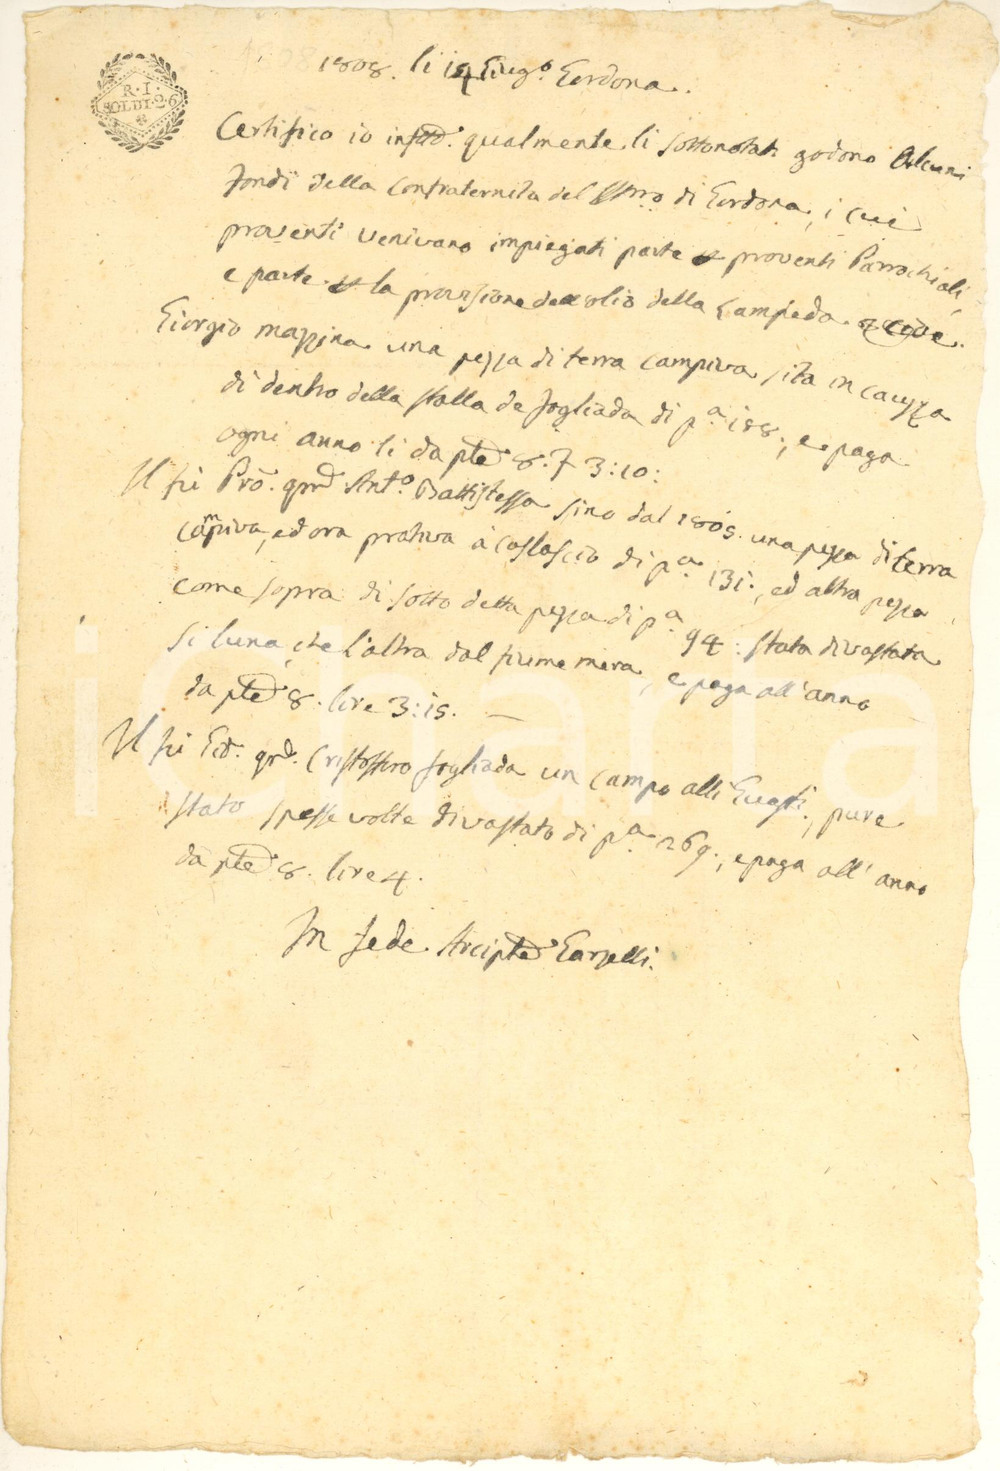 R. I.
SOLDI. 26
1808. li 19 Giug.o Gordona.
Certifico io insctto. qualmente li sottonotati godono alcuni
fondi della Confraternita del SSmo di Gordona, i cui
proventi venivano impiegati parte proventi Parrochiali
e parte la provisione dell'olio della Lampeda cioè.
Giorgio Mazzina una pezza di terra campiva sita in
di dentro della stalla de Fogliada di p.a 188., e paga
ogni anno li da pte 8. 3:10:
Il fù Pro. qm. Ant.o Battistessa sino dal 1805. una pezza di terra
campiva, ed ora prativa à di p.a 131., ed altra pezza
come sopra di sotto detta pezza di p.a 94: stata divastata
si luna, che l'altra dal fiume mera, e paga all'anno
da pte 8. lire 3:15.
Il fù qm. Cristoforo Fogliada un campo alli Guasti, pure
stato spesse volte divastato di p.a 269., e paga all'anno
da pte 8. lire 4.
In fede Arcipte Garzelli.